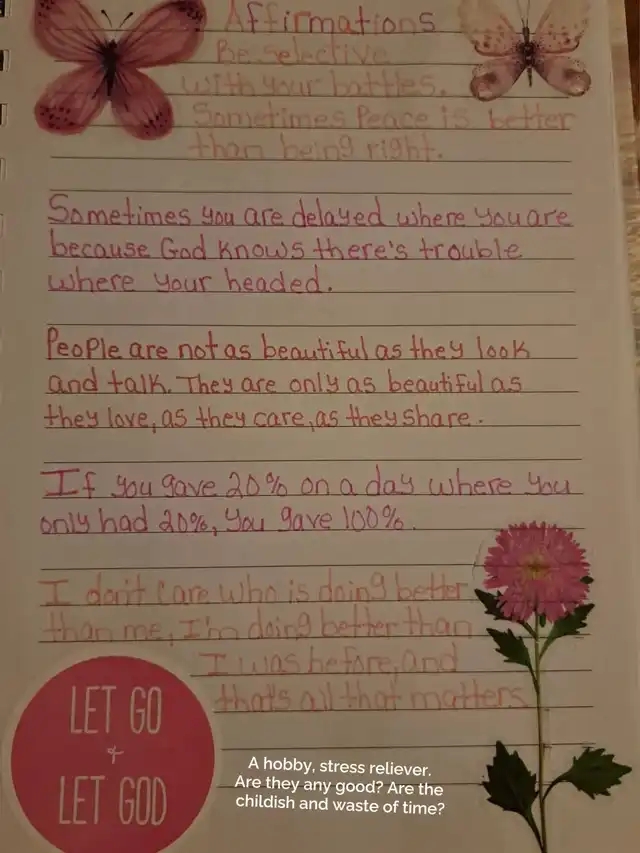 Affirmations
Be selective
with your battles.
Sometimes Peace is better
than being right.
Sometimes you are delayed where you are
because God knows there's trouble
where your headed.
People are not as beautiful as they look
and talk. They are only as beautiful as
they love, as they care, as they share.
If you gave 20% on a day where you
only had 20%, you gave 100%.
I don't care who is doing better
than me, I'm doing better than
I was before, and
that's all that matters
LET GO
+
LET GOD
A hobby, stress reliever.
Are they any good? Are the
childish and waste of time?